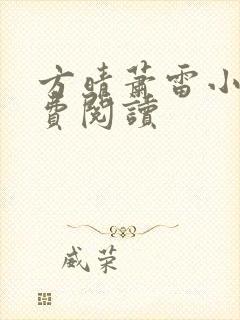 方晴蕭雷小
費閱讀
威荣